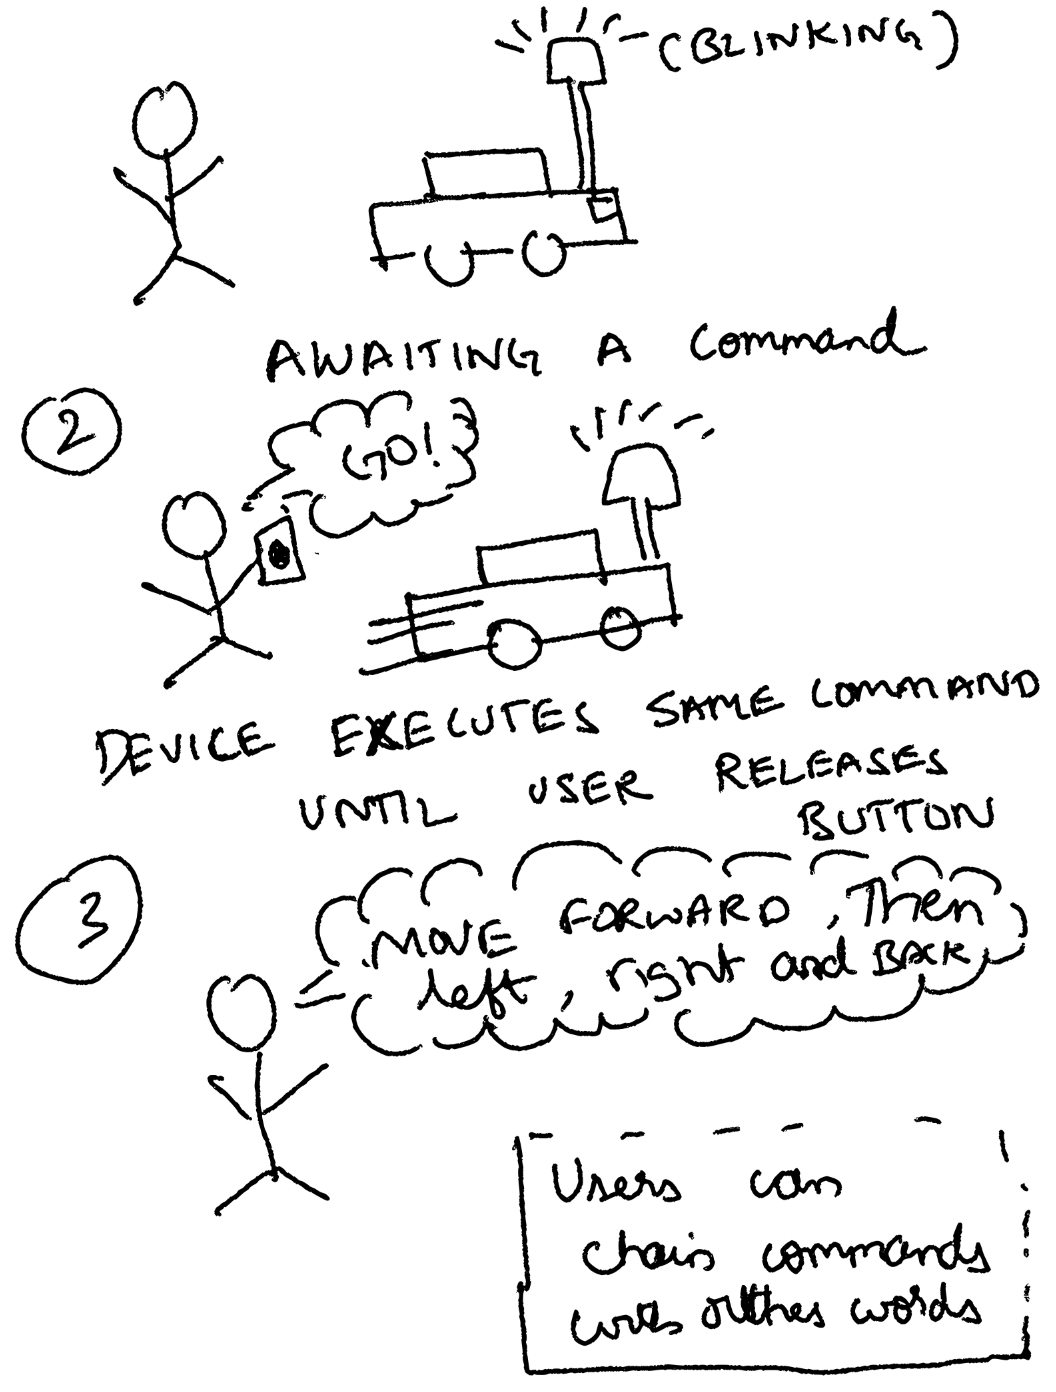 (BLINKING)
AWAITING A Command
2
GO!
DEVICE EXECUTES SAME COMMAND
UNTIL USER RELEASES
BUTTON
3
MOVE FORWARD, Then
left, right and BACK
Users can
chain commands
with others words